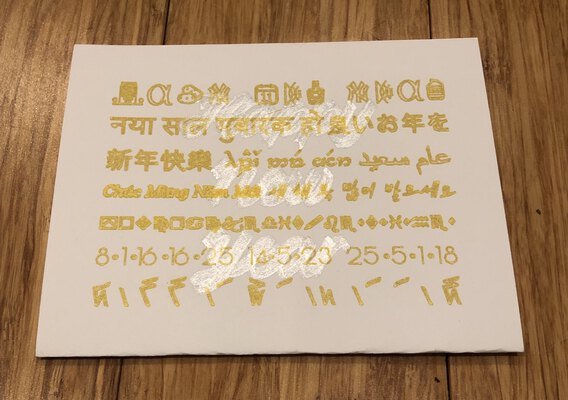 नया साल मुबारक हो 良いお年を
新年快樂 عام سعيد
Chúc Mừng Năm Mới 새해 복 많이 받으세요
8·1·16·16·25 14·5·23 25·5·1·18
Happy
new
year